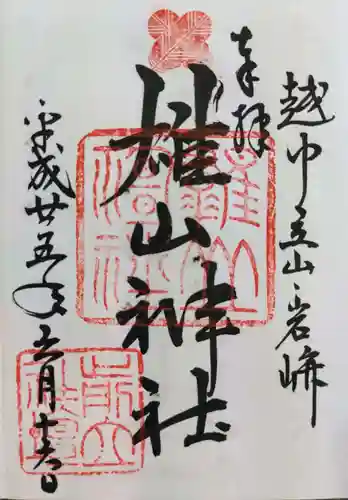 越中立山岩峅
奉拝
雄山神社
平成廿五年五月